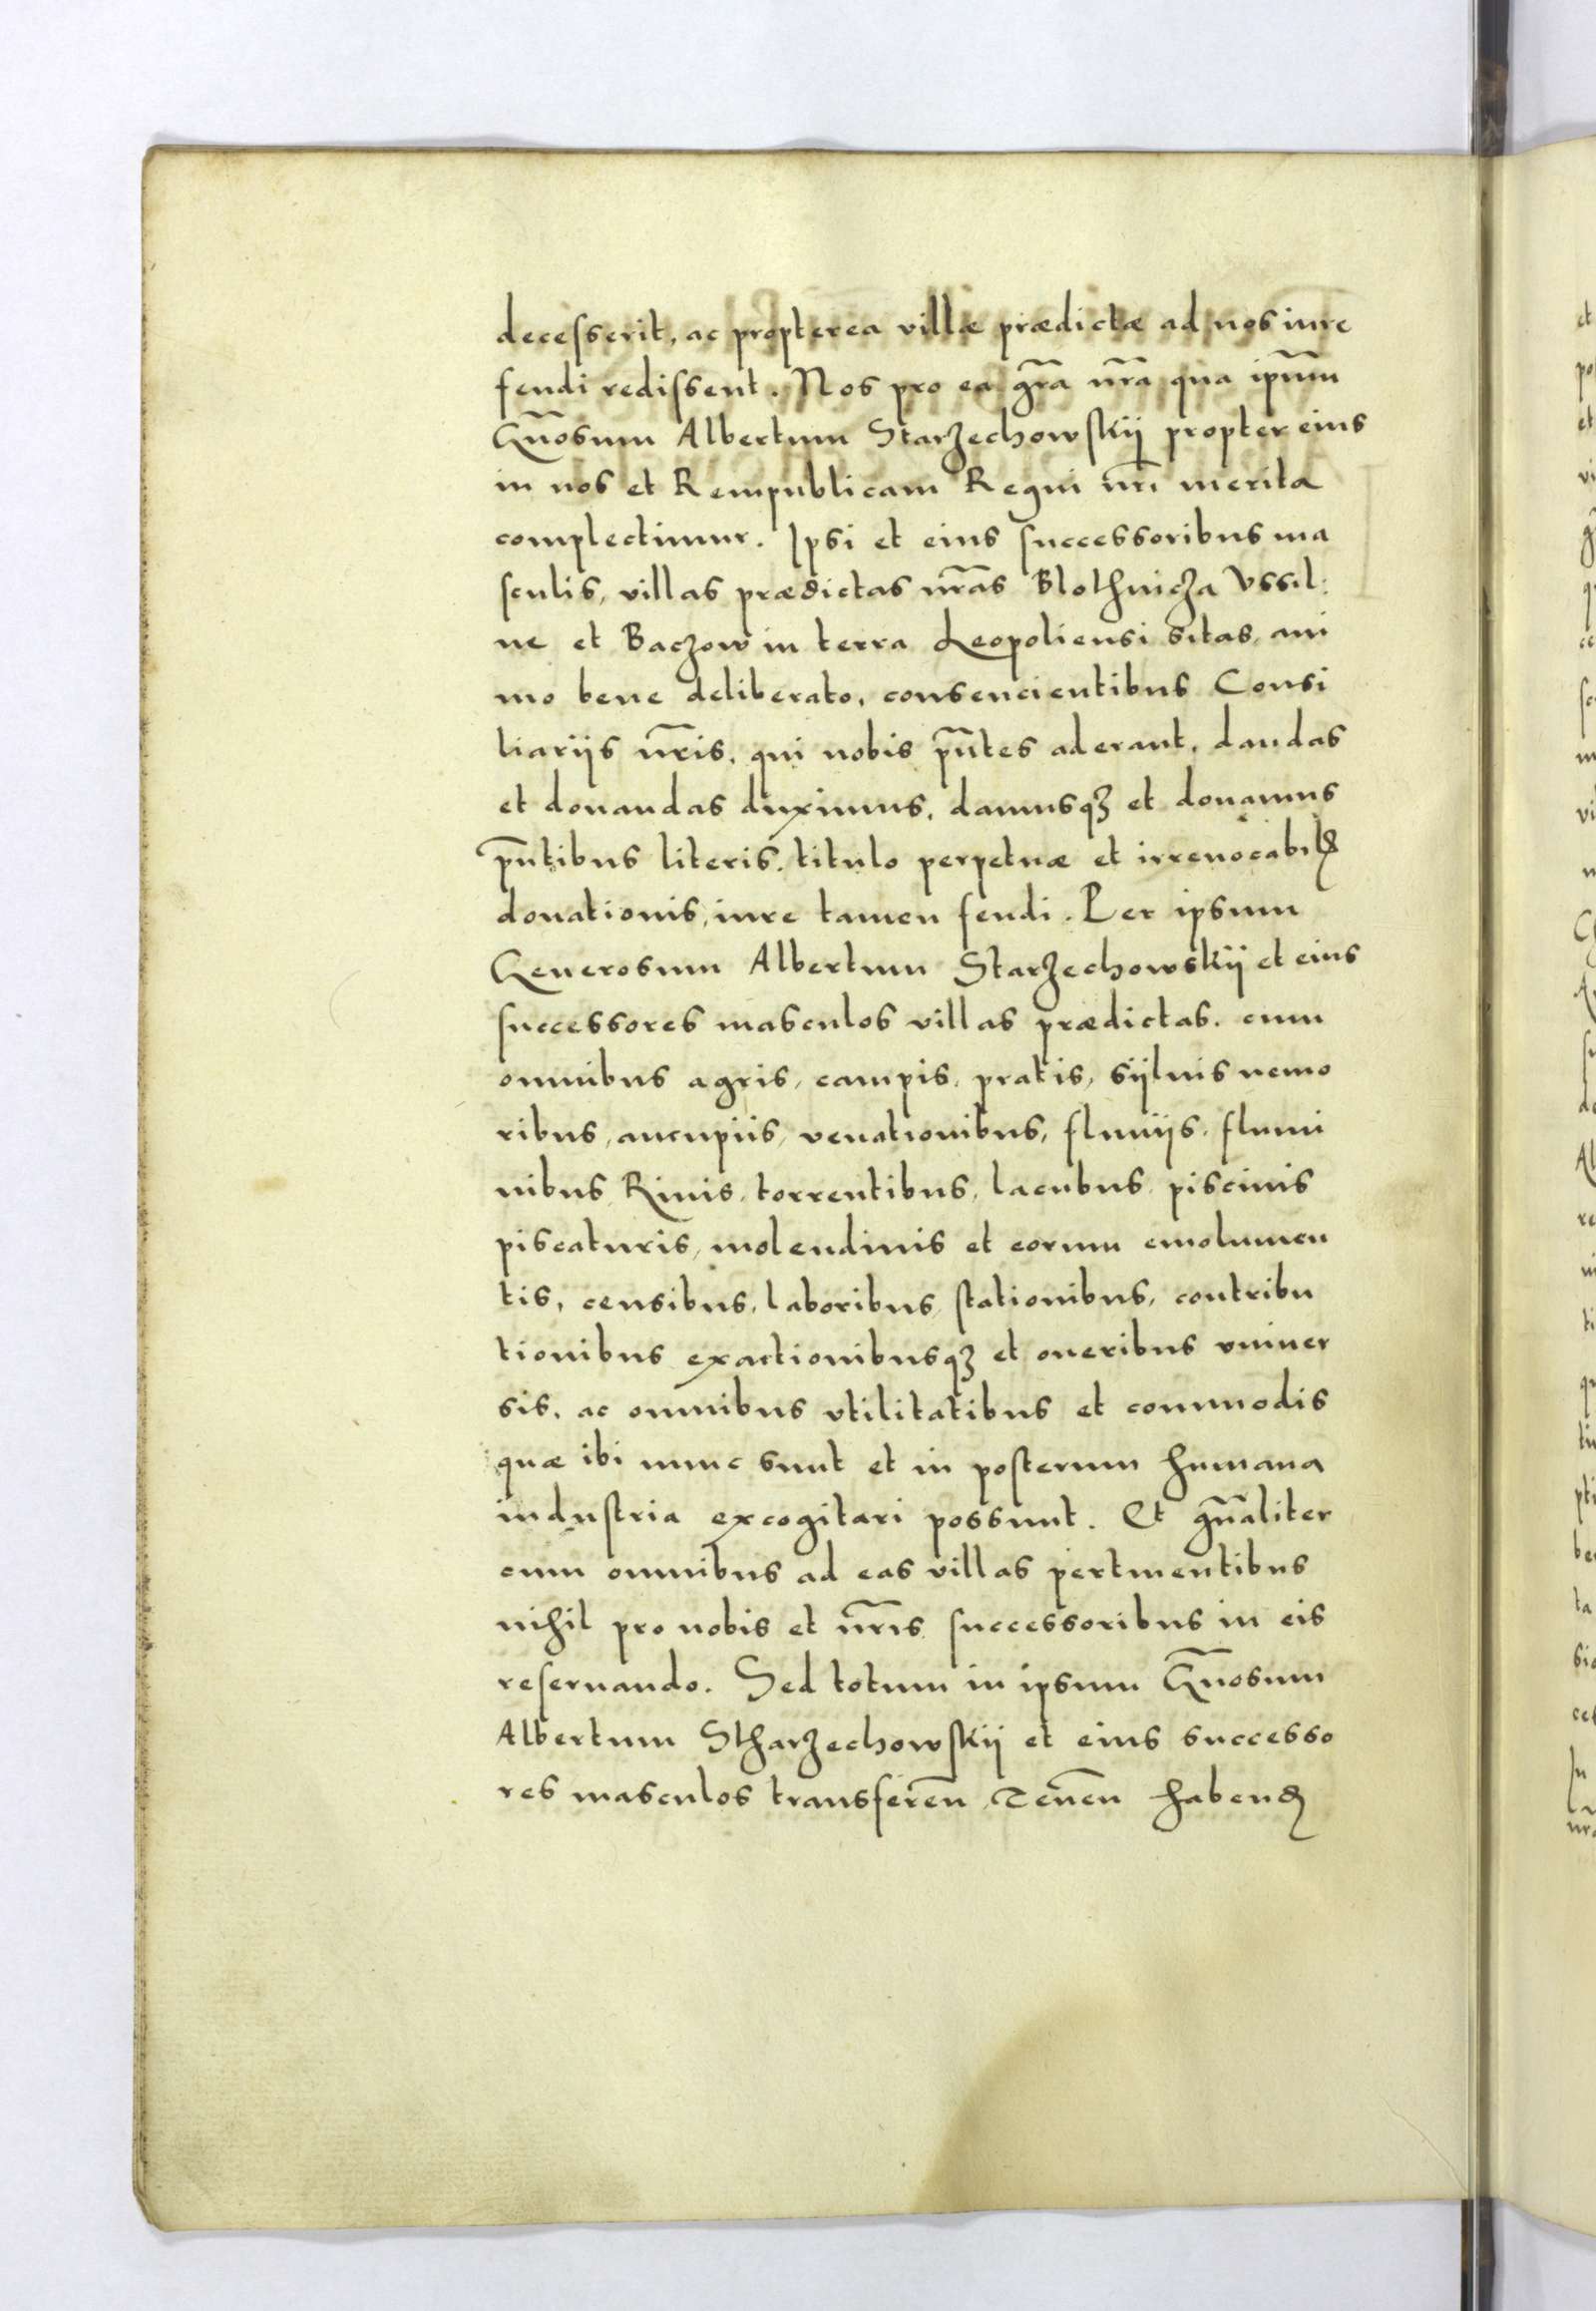 decesserit, ac propterea villæ prædictæ ad nos iure
feudi redissent. Nos pro ea gr̃a nr̃a qua ip̃um
Gñosum Albertum Starzechowskij propter eius
in nos et Rempublicam Regni nr̃i merita
complectimur. Ipsi et eius successoribus ma
sculis, villas prædictas nr̃as Blothnicza Vssil:
ne et Baczow in terra Leopoliensi sitas, ani
mo bene deliberato, consencientibus Consi
liarijs nr̃is, qui nobis pñtes aderant, dandas
et donandas duximus, damusqꝫ et donamus
pñtibus literis, titulo perpetuæ et irreuocabilꝭ
donationis, iure tamen feudi. Per ipsum
Generosum Albertum Starzechowskij et eius
successores masculos villas prædictas, cum
omnibus agris, campis, pratis, sijluis nemo
ribus, aucupiis, venationibus, fluuijs, flumi
nibus, Riuis, torrentibus, lacubus, piscinis
piscaturis, molendinis et eorum emolumen
tis, censibus, laboribus, stationibus, contribu
tionibus exactionibusqꝫ et oneribus vniuer
sis, ac omnibus vtilitatibus et commodis
quæ ibi nunc sunt et in posterum humana
industria excogitari possunt. Et gñaliter
cum omnibus ad eas villas pertinentibus
nihil pro nobis et nr̃is successoribus in eis
reseruando. Sed totum in ipsum Gñosum
Albertum Stharzechowskij et eius successo
res masculos transfereñ, Teneñ habenꝭ